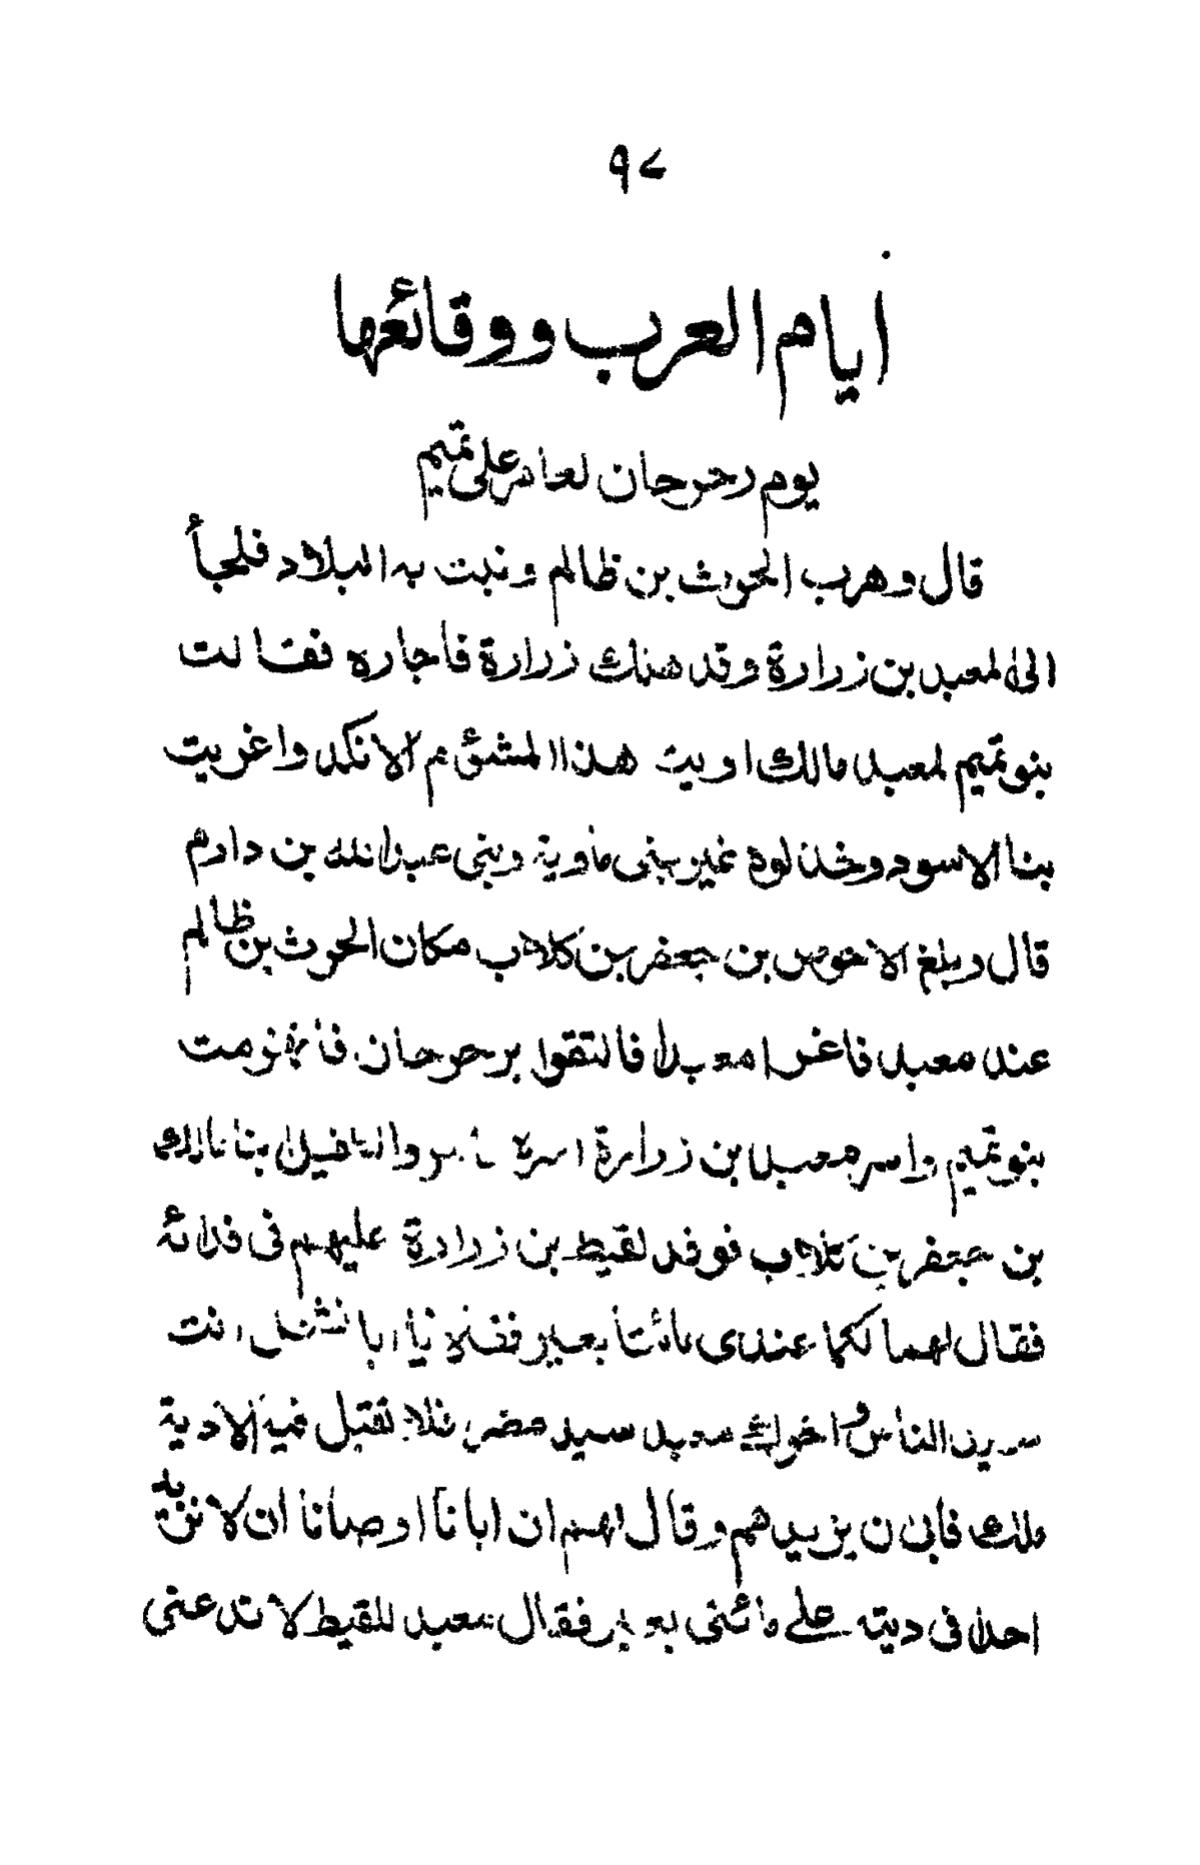 ٩٧
ايام العرب ووقائعها
يوم رحرحان لعامر على تميم
قال وهرب الحرث بن ظالم ونبت به البلاد فلجأ
الى المعبد بن زرارة وقد هلك زرارة فاجاره فقالت
بنو تميم لمعبد مالك اويت هذا المشئوم الانكد واغريت
بنا الاسود وخذلوه غير بنى ماوية وبنى عبدالله بن دارم
قال وبلغ الاحوص بن جعفر بن كلاب مكان الحرث بن ظالم
عند معبد فاغرا معبدا فالتقوا برحرحان فانهزمت
بنو تميم واسر معبد بن زرارة اسره عامر والطفيل ابنا مالك
بن جعفر بن كلاب فوفد لقيط بن زرارة عليهم فى فدائه
فقال لهما لكما عندى مائتا بعير فقالا يا ابا نهشل انت
سيد الناس واخوك معبد سيد مضر فلا نقبل فيه الا دية
ملك فابى ن يزيدهم وقال لهم ان ابانا اوصانا ان لا نزيد
احدا فى ديته على مائتى بعير فقال معبد للقيط لا تدعنى